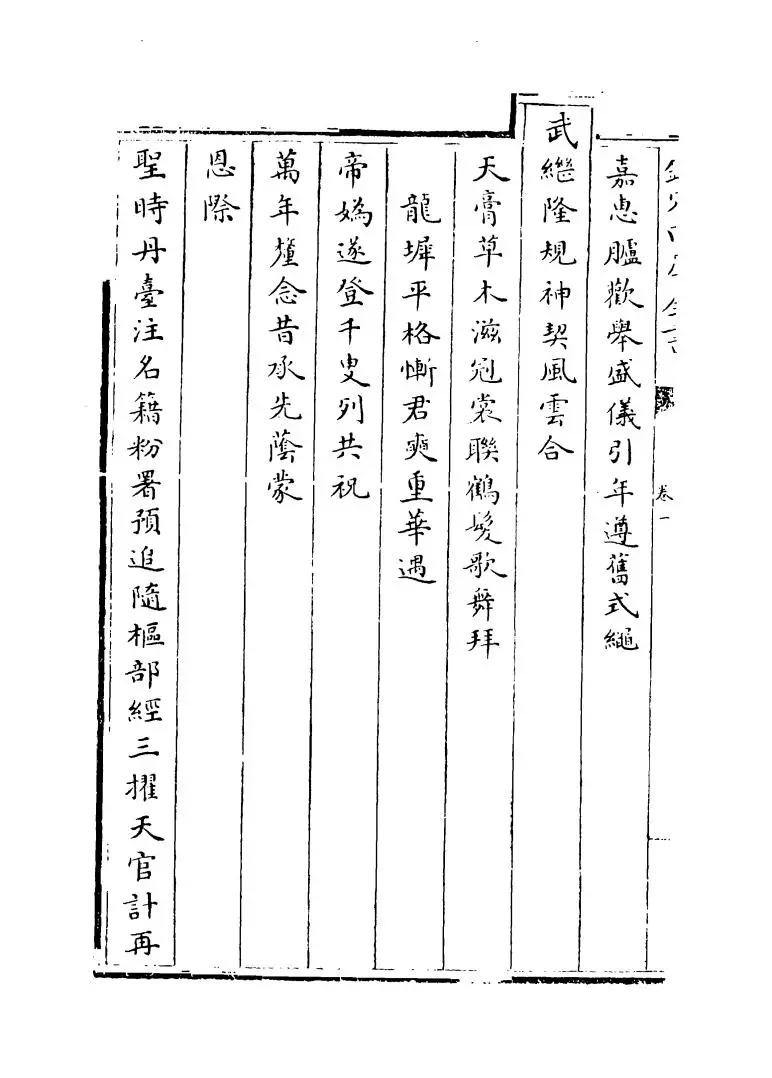 卷一
嘉惠臚歡舉盛儀引年遵舊式繩
武繼隆規神契風雲合
天膏草木滋冠裳聯鶴髮歌舞拜
龍墀平格慚君奭重華遇
帝媯遂登千叟列共祝
萬年釐念昔承先蔭蒙
恩際
聖時丹臺注名籍粉署預追隨樞部經三擢天官計再